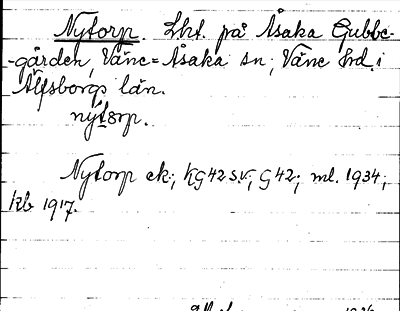 Nytorp. Lht. på Åsaka Gubbe-
-gården, Väne=Åsaka sn; Väne hrd. i
Älfsborgs län.
nytorp.
Nytorp ek.; KG42SV, G42; ml. 1934;
kb 1917.